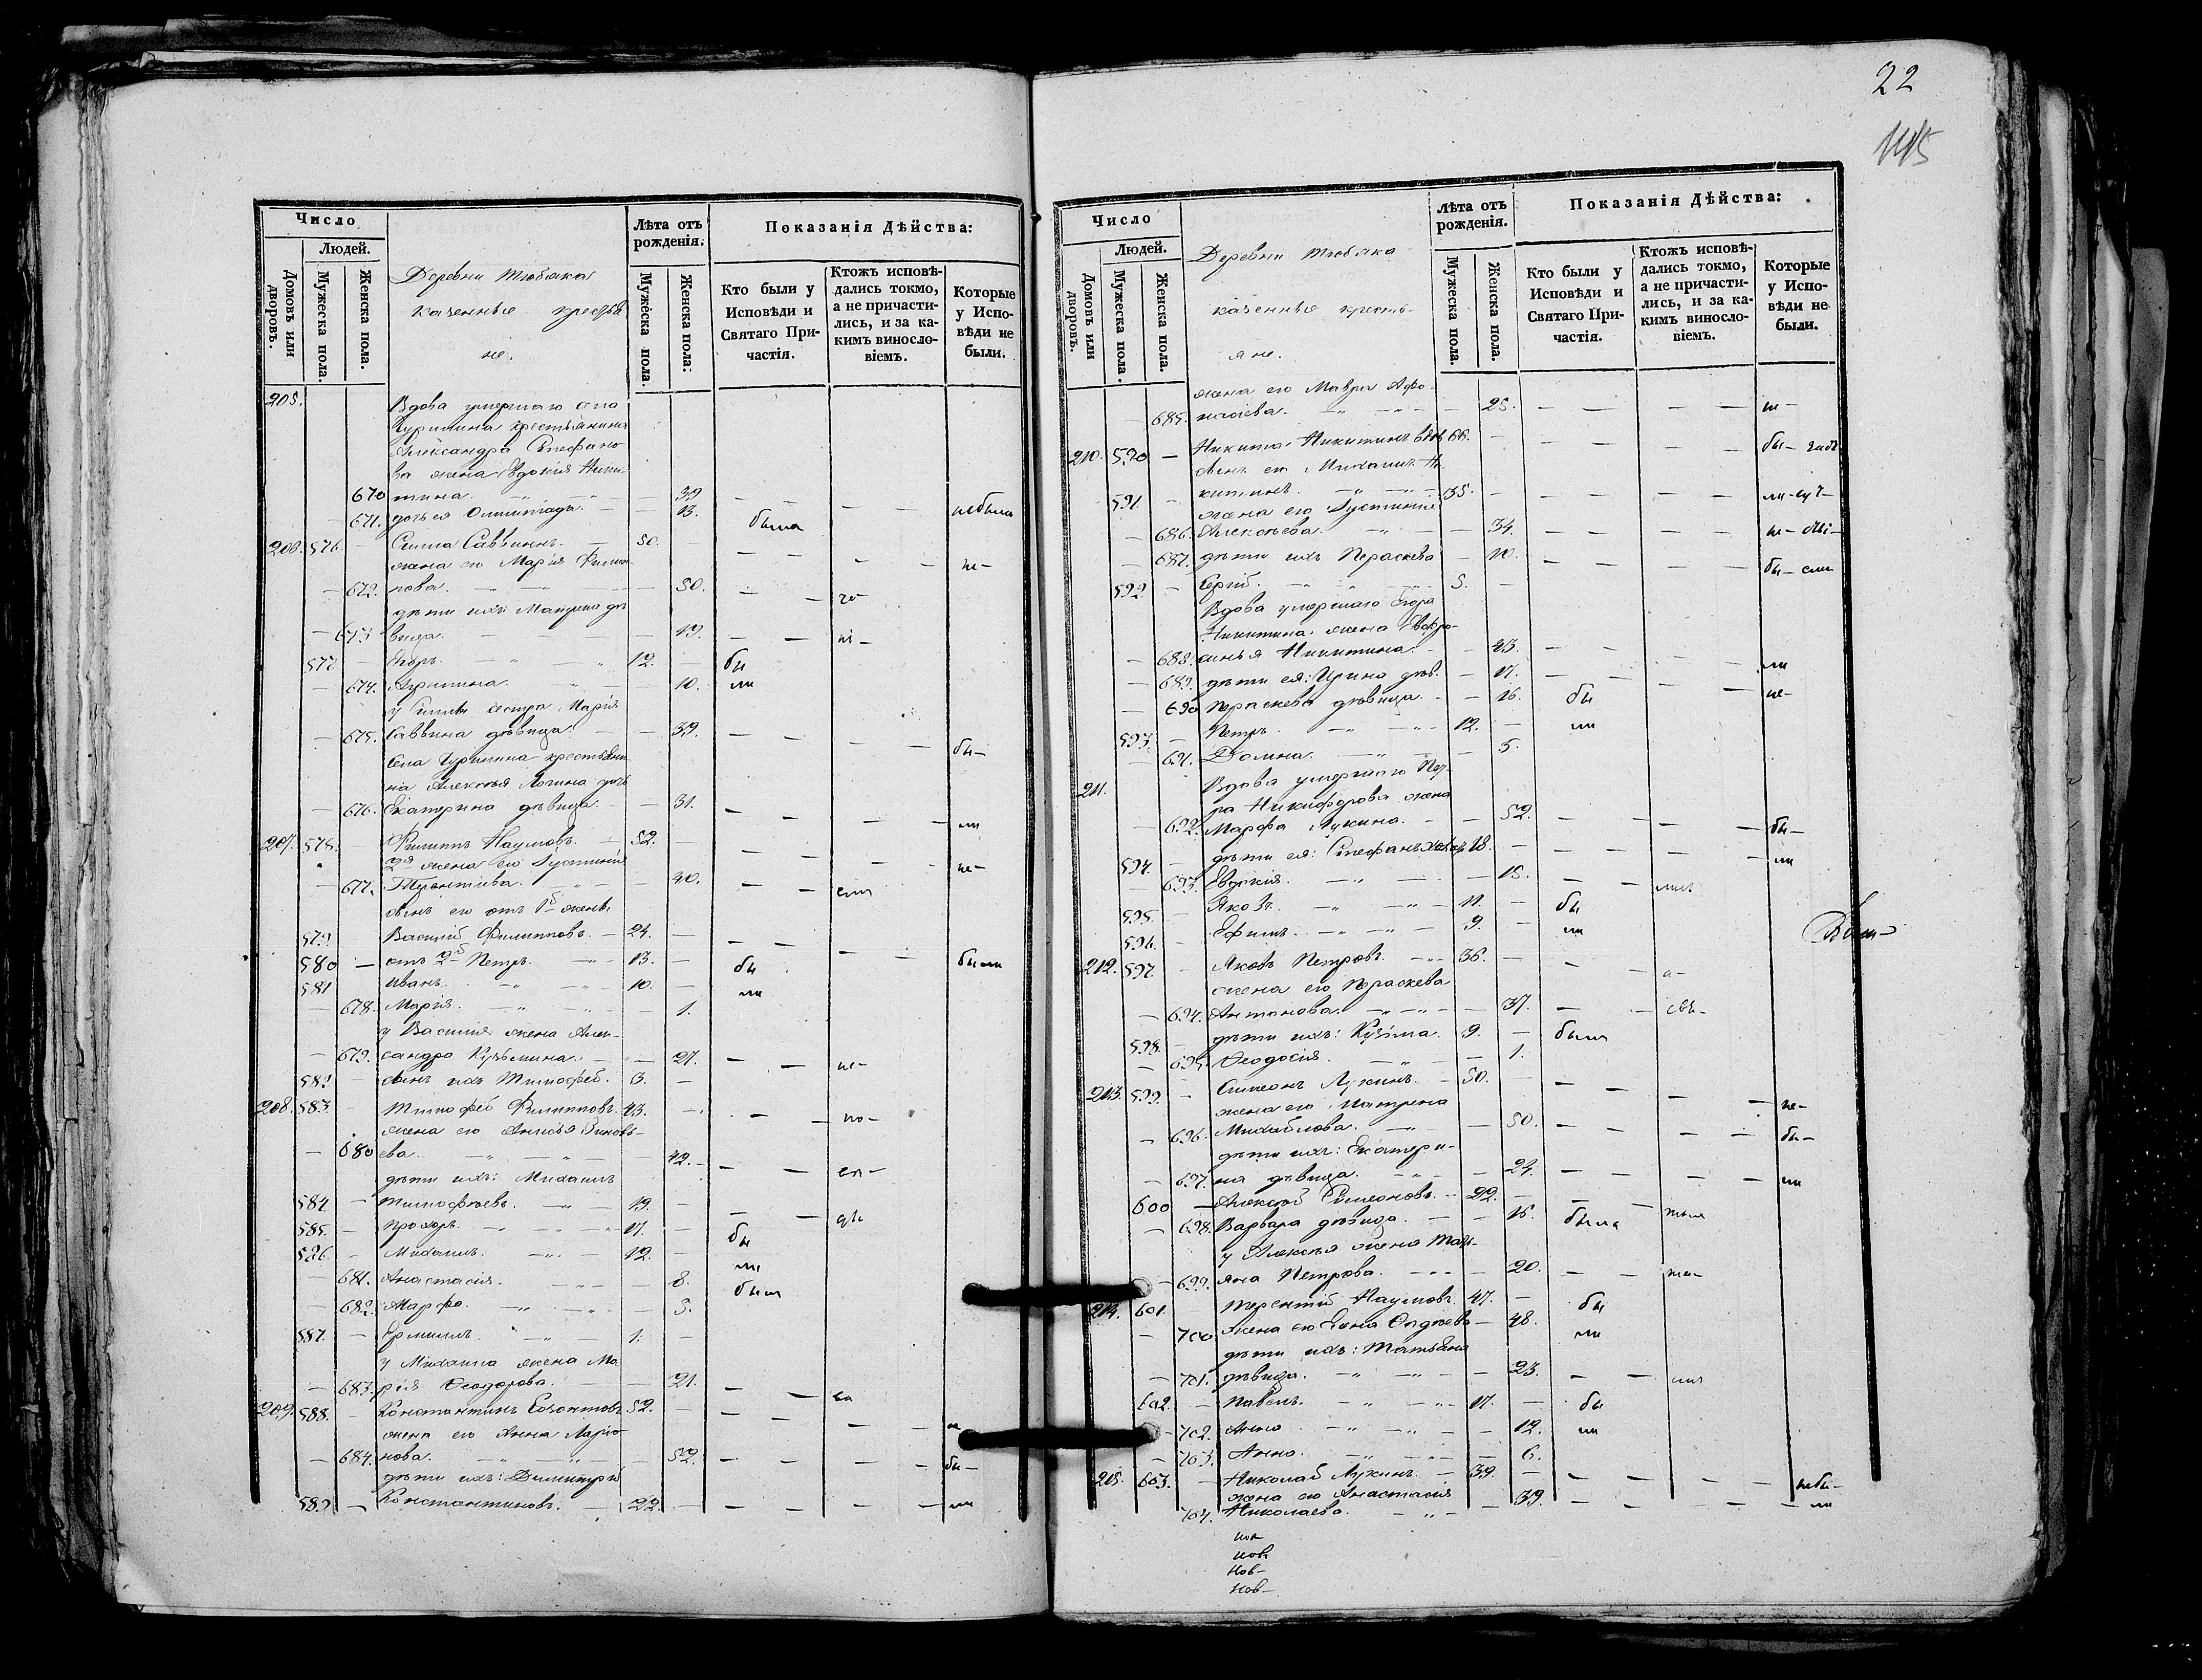 22
Число
Людей.
Домовъ или дворовъ.
Мужеска пола.
Женска пола.
Деревни Тюбяка
казенные крестья
не.
Лѣта отъ рожденія.
Мужеска пола.
Женска пола.
Показанія Дѣйства:
Кто были у Исповѣди и Святаго Причастія.
Ктожъ исповѣдались токмо, а не причастились, и за какимъ винословіемъ.
Которые у Исповѣди не были.
205. Вдова умершаго села
Чуришина крестьянина
Александра Стефано
ва жена Евдокія Ники
670 тина. — 39 — —
671. дочь ея Олимпіада. — 13. была — небыла
206. 576. Саввинъ. — 50. — —
жена его Марія Филип
672. пова. — 50. — — не-
дѣти ихъ: Матрена дѣ
673 вица. — 19. — —
577. Егоръ. 12. — бы
674. Агрипина. — 10. ли
у сестра Марія
675. Саввина дѣвица. — 39. — — бы-
Села Чуришина крестьяни
на Алексѣя Логина дочь
676. Екатерина дѣвица. — 31. — — ли
207. 578. Филиппъ Наумовъ. — 52. — — не-
2я жена его Іустинія
677. Терентіева. — 40. — —
сынъ его отъ 1й жены
579. Василій Филипповъ. — 24. — —
580 — отъ 2й Петръ. — 13. — бы — были
581 Иванъ. — 10. — ли
678. Марія. — 1.
у Василія жена Алек-
679. сандра Кузьмина. — 27. — — не-
582. сынъ ихъ Тимофей. 3. —
208. 583. Тимофей Филипповъ. 43. — — по-
жена его Анисья Зиновь-
680 ева. — 42. — —
дѣти ихъ: Михаилъ
584. Тимофѣевъ. — 19. — —
585. Прохоръ. — 17. — бы
586. Михаилъ. — 12. — ли
681. Анастасія. — 8. была
682. Марфа. — 3.
587. — Ермилъ. — 1. —
у Михаила жена Ма
683. рія Ѳеодорова. — 21. — —
209. 588. Константинъ 52. — — не
жена его Анна Ларіо
684. нова. — 52. — — бы-
дѣти ихъ: Димитрій
589. — Константиновъ. — 22. — — ли
Число
Людей.
Домовъ или дворовъ.
Мужеска пола.
Женска пола.
Деревни Тюбяка
казенные кресть-
яне.
Лѣта отъ рожденія.
Мужеска пола.
Женска пола.
Показанія Дѣйства:
Кто были у Исповѣди и Святаго Причастія.
Ктожъ исповѣдались токмо, а не причастились, и за какимъ винословіемъ.
Которые у Исповѣди не были.
жена его Мавра Афо-
685. насіева. — 25. — —
210. 590 — Никита Никитинъ вдов. 66. — — бы-
сынъ его Михаилъ Ни
591. китинъ. — 35. — —
жена его Іустинія
686. Алексѣева. — 34. — —
687. дѣти ихъ Параскева — 10. — —
592. — Сергій. — 5. —
Вдова умершаго Егора
Никитина жена Евфро-
688. синья Никитина. — 43. — — ли
689. дѣти ея: Ирина дѣв. — 17. — — не-
690 Параскева дѣвица. — 16. бы
593. — Петръ. — 12. — ли
691. Домна. — 5.
211. Вдова умершаго Пет-
ра Никифорова жена
692. Марфа Лукина. — 52. — — бы-
594. — дѣти ея: Стефанъ 18. — — ли
693. Евдокія. — 15. — —
595. — Яковъ. — 11. — бы
596. — Ефимъ. — 9. — ли
212. 597. — Яковъ Петровъ. — 36. — —
жена его Параскева
694. Антонова. — 37. — —
598. — дѣти ихъ: Кузьма. 9. — были
695. Ѳеодосія. — 1.
213. 599. — Симеонъ Лукинъ. — 50. — — не-
жена его Матрена
696. Михайлова. — 50. — — бы-
дѣти ихъ: Екатери-
697. на дѣвица. — 24. — — ли
600 — Алексѣй Симеоновъ. — 22. — —
698. Варвара дѣвица. — 15. была
у Алексѣя жена Тать-
699. яна Петрова. — 20. — —
214. 601. Терентій Наумовъ. 47. — бы
700 жена его Анна — 48. ли
дѣти ихъ: Татьяна
701. дѣвица. — 23. — —
602. — Павелъ. — 17. — бы
702. Анна — 12. ли
703. Анна. — 6.
215. 603. — Николай Лукинъ. — 39. — — небы-
жена его Анастасія
704. Николаева. — 39. — — ли